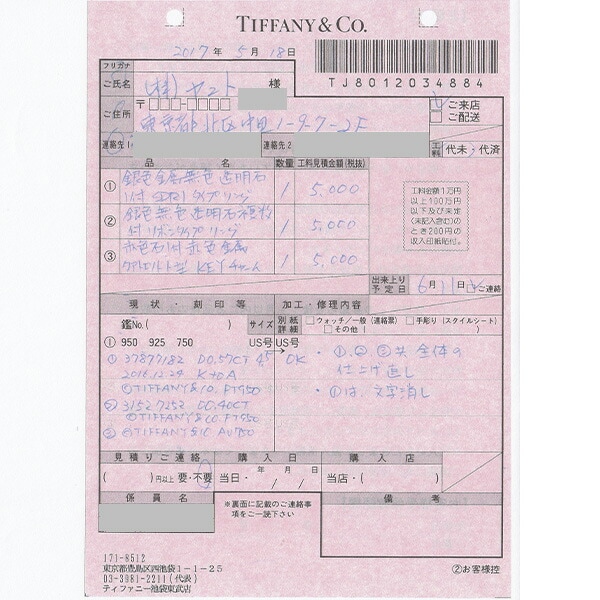 TIFFANY & CO.
2017 年 5 月 18 日
TJ8012034884
フリガナ
ご氏名 (株)ヤマト 様
ご来店
ご配送
ご住所 〒
東京都北区中里1-9-7-2F
連絡先1
連絡先2
工料 代未・代済
品名 数量 工料見積金額(税抜)
① 銀色金属無色透明石
1付SDRIタイプリング 1 5,000
② 銀色金属無色透明石複数
付リボンタイプリング 1 5,000
③ 赤色石付赤色金属
KEYチャーム 1 5,000
工料金額1万円
以上100万円
以下及び未定
(未記入含む)の
とき200円の
収入印紙貼付。
出来上り
予定日 6月 11日 ご連絡
現状・刻印等 加工・修理内容
鑑No.( ) サイズ 別紙詳細 ウォッチ/一般(連絡票) 手彫り(スタイルシート)
その他( )
① 950 925 750 US号→US号
① 37877182 D0.57CT 4.5 OK
2016.12.24 K+DA
©TIFFANY&CO. PT950
② 31527252 D0.40CT
©TIFFANY&CO. PT950
③ ©TIFFANY&CO AU750
・①、②、③共 全体の
仕上げ直し
・①は、文字消し
見積りご連絡 購入日 購入店
( )円以上 要・不要 当日・ 年 / 月 / 日 当店・( )
係員名
※裏面に記載のご連絡事
項をご一読下さい
備考
171-8512
東京都豊島区西池袋1-1-25
03-3981-2211(代表)
ティファニー池袋東武店
②お客様控